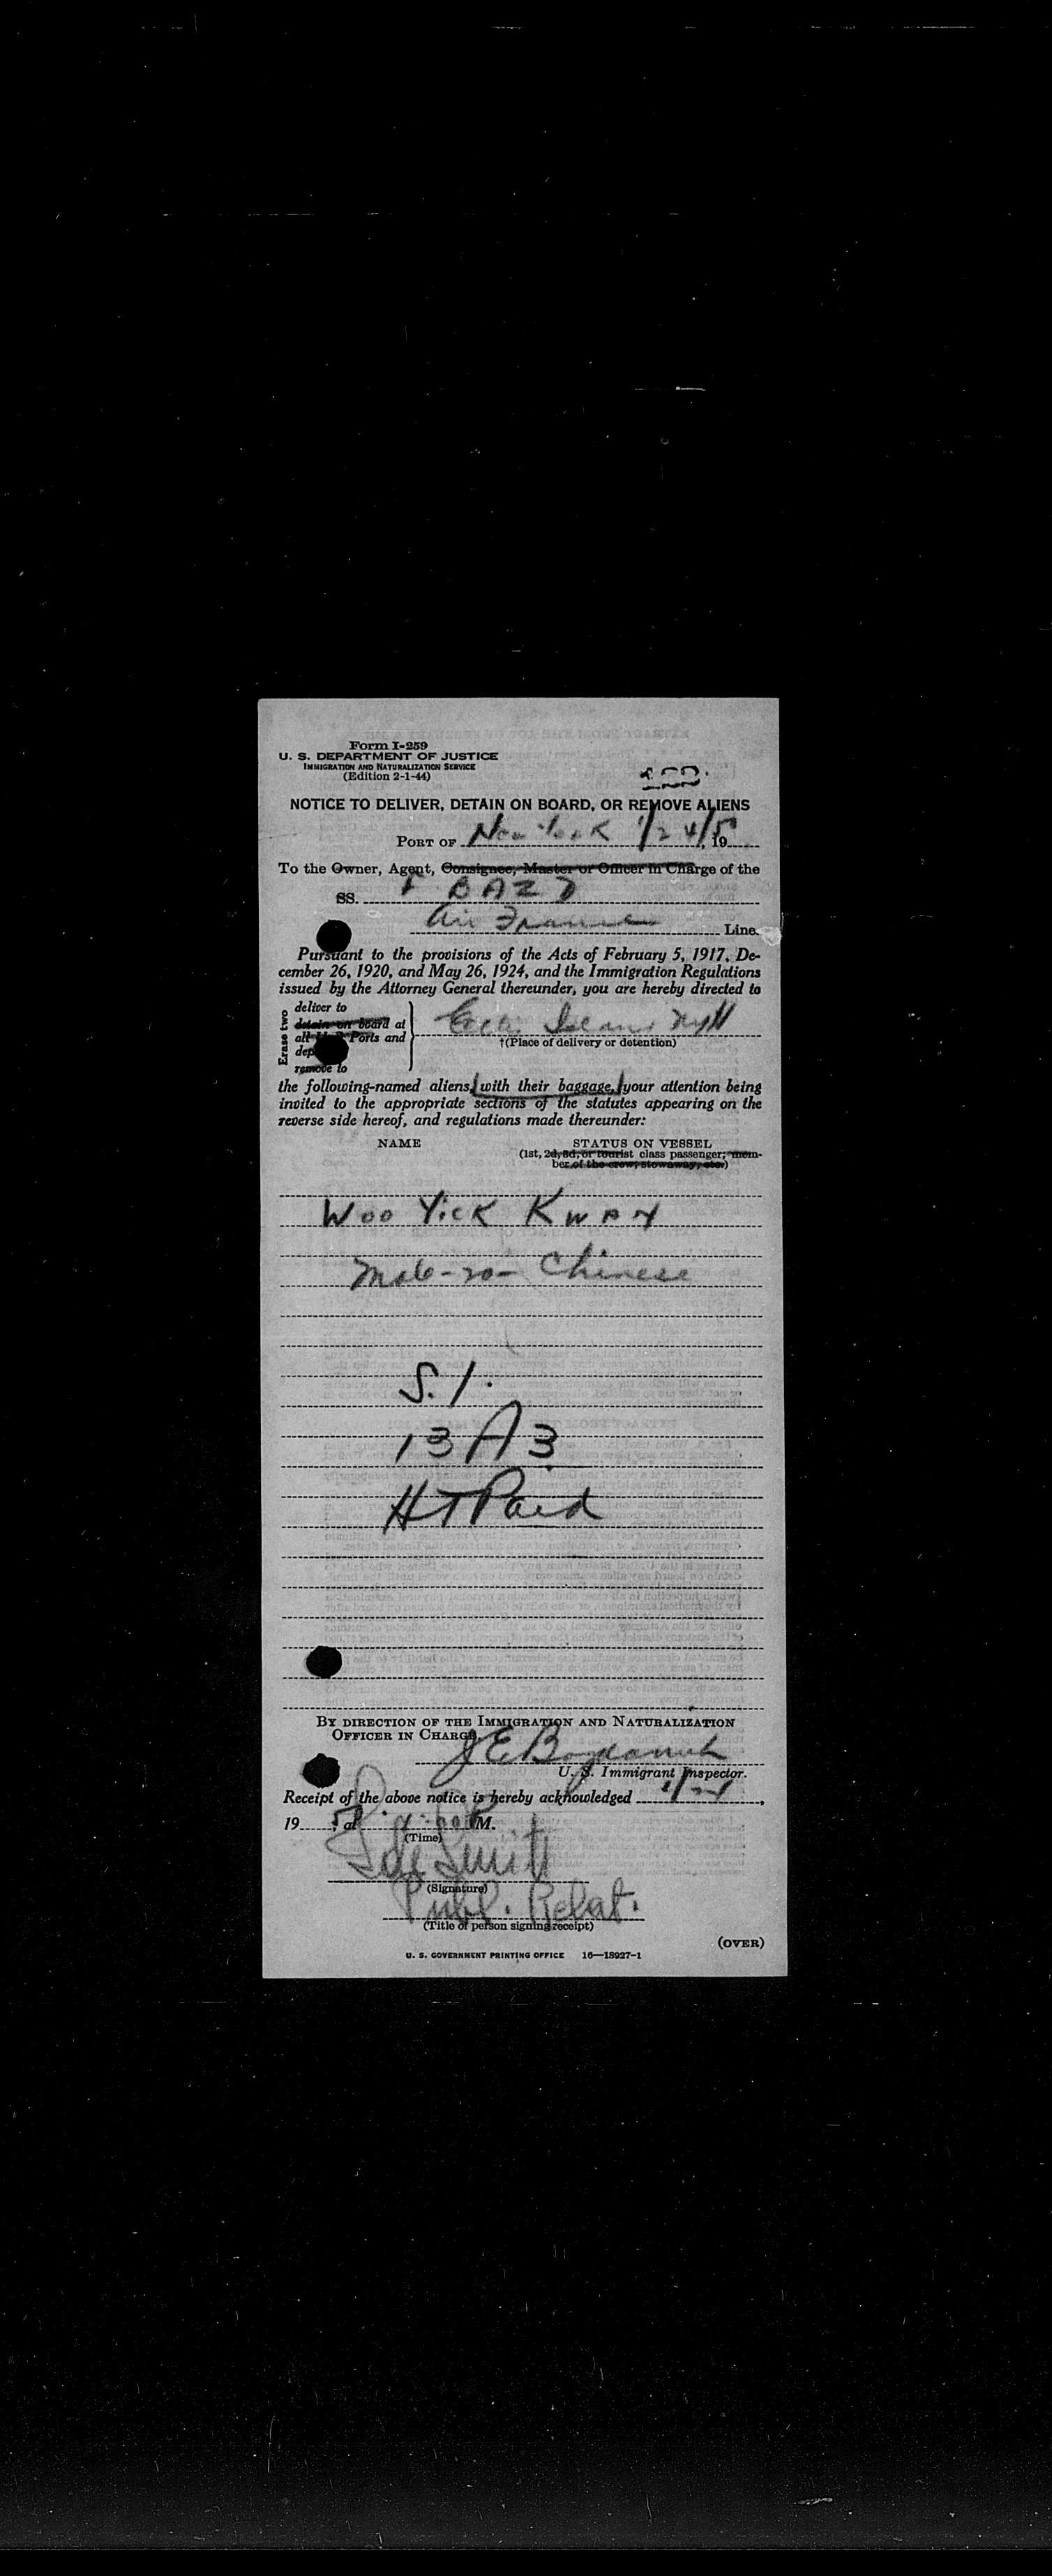 Form I-259
U. S. DEPARTMENT OF JUSTICE
IMMIGRATION AND NATURALIZATION SERVICE
(Edition 2-1-44)
NOTICE TO DELIVER, DETAIN ON BOARD, OR REMOVE ALIENS
PORT OF New York 1/24/5, 19
To the Owner, Agent, Consignee, Master or Officer in Charge of the
SS. F BAZD
Air France Line.
Pursuant to the provisions of the Acts of February 5, 1917, De-
cember 26, 1920, and May 26, 1924, and the Immigration Regulations
issued by the Attorney General thereunder, you are hereby directed to
Erase two
deliver to
detain on board at
all Ports and
dep
remove to
Island NYH
†(Place of delivery or detention)
the following-named aliens, with their baggage, your attention being
invited to the appropriate sections of the statutes appearing on the
reverse side hereof, and regulations made thereunder:
NAME STATUS ON VESSEL
(1st, 2d, 3d, or tourist class passenger; mem-
ber of the crew; stowaway, etc.)
WOO YICK KWAY
Male-20- Chinese
S.I.
13A3
HT Paid
BY DIRECTION OF THE IMMIGRATION AND NATURALIZATION
OFFICER IN CHARGE
J E
U. S. Immigrant Inspector.
Receipt of the above notice is hereby acknowledged 1/24,
19 5 at M.
(Time)
(Signature)
Publ. Relat.
(Title of person signing receipt)
(OVER)
U. S. GOVERNMENT PRINTING OFFICE 16—18927-1